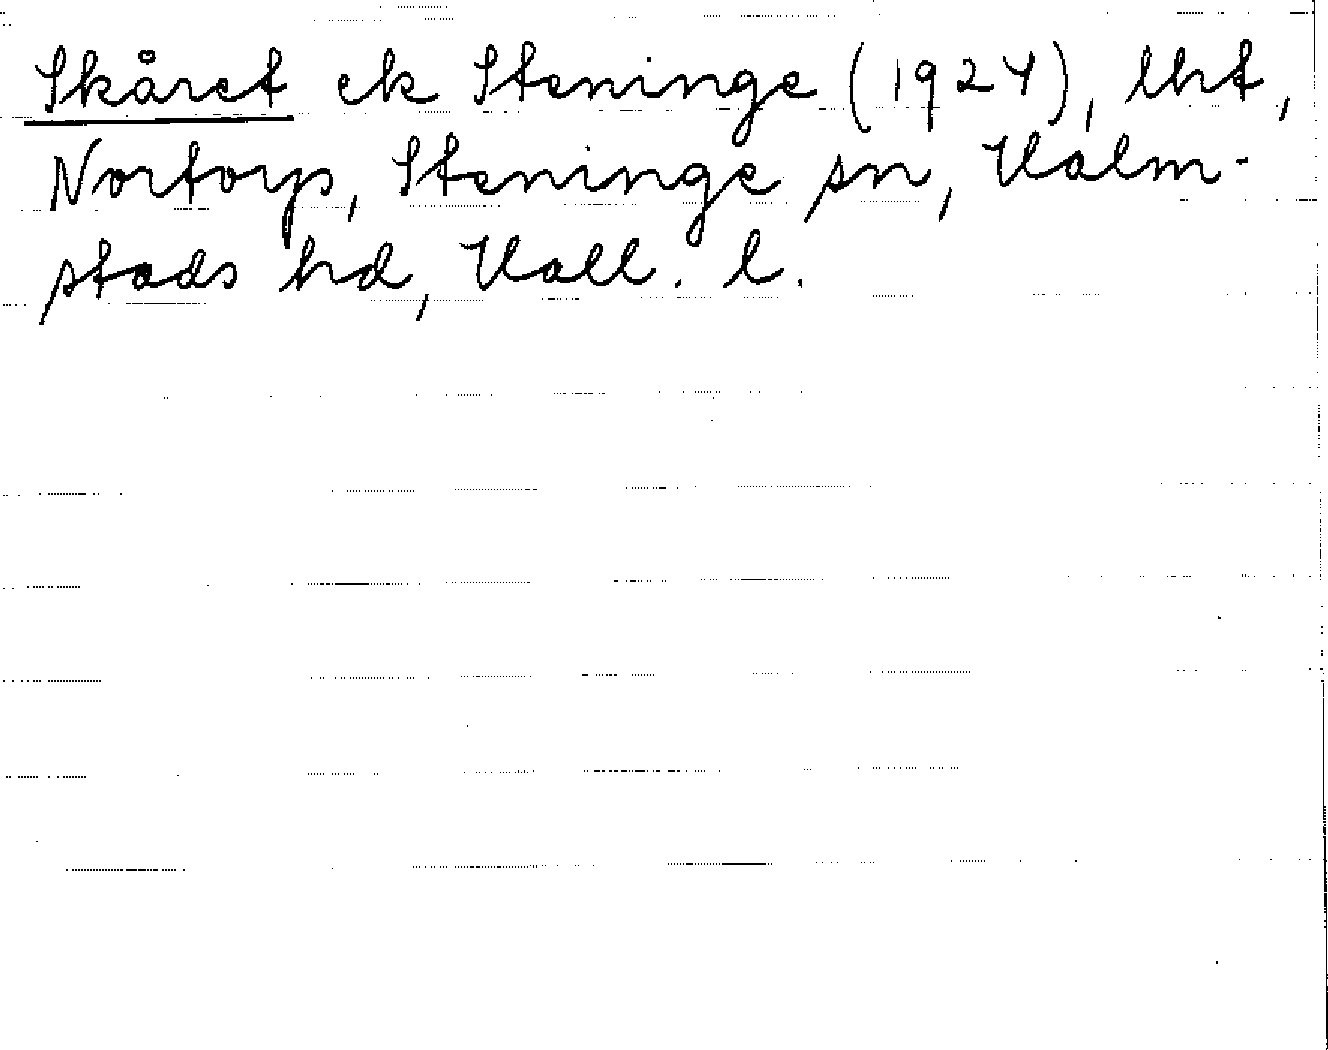 Skåret ek Steninge (1924), lht,
Nortorp, Steninge sn, Halm-
stads hd, Hall. l.